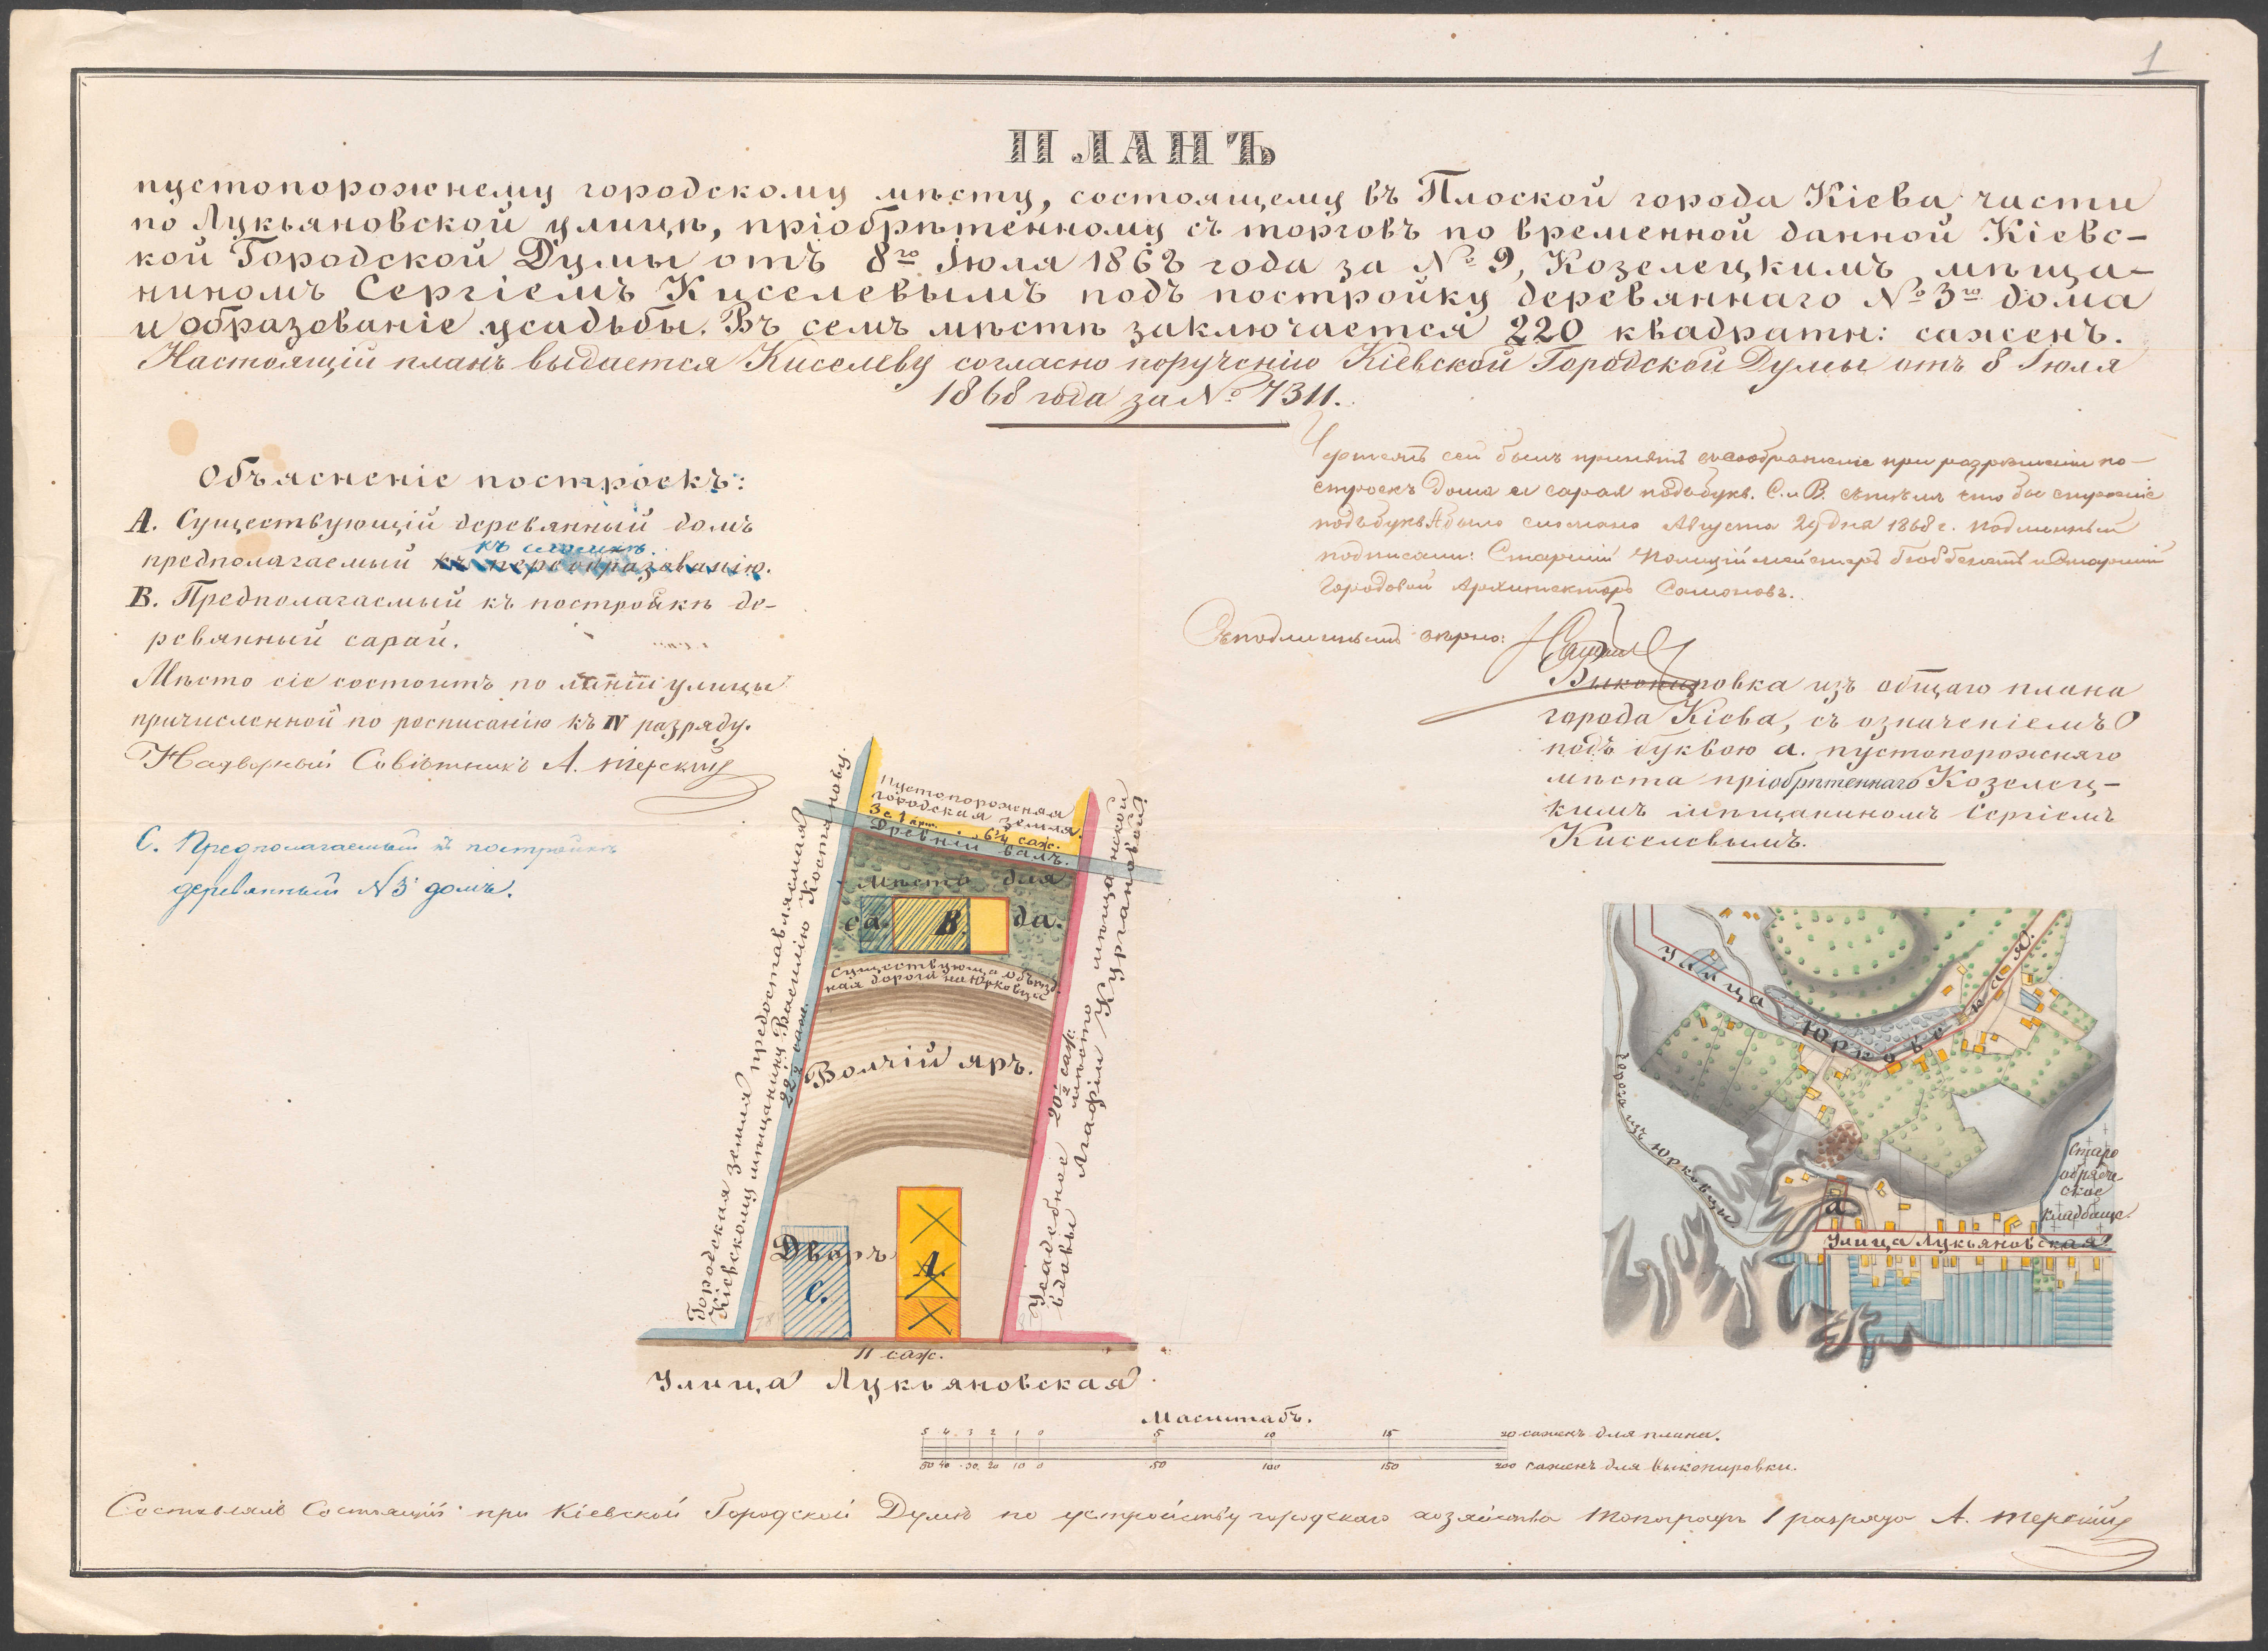 1
ПЛАНЪ
пустопорожнему городскому мѣсту, состоящему въ Плоской города Кіева части
по Лукьяновской улицѣ, пріобрѣтенному съ торговъ по временной данной Кіевс-
кой Городской Думы отъ 8го Іюля 1868 года за № 9, Козелецкимъ мѣща-
ниномъ Сергіемъ Киселевымъ подъ постройку деревяннаго № 3го дома
и образованіе усадьбы. Въ семъ мѣстѣ заключается 220 квадратн: саженъ.
Настоящій планъ выдается Киселеву согласно порученію Кіевской Городской Думы отъ 8 Іюля
1868 года за № 7311.
Объясненіе построекъ:
А. Существующій деревянный домъ
къ сломкѣ.
предполагаемый къ переобразованію.
В. Предполагаемый къ постройкѣ де-
ревянный сарай.
Мѣсто сіе состоитъ по линіи улицы
причисленной по росписанію къ IV разряду.
Надворный Совѣтникъ А. Терскій
С. Предполагаемый къ постройкѣ
деревянный № 3 домъ.
Чертежъ сей былъ принятъ въ соображеніе при разрѣшеніи по-
строекъ дома и сарая подъ букв. С. и В. съ тѣмъ что бы строеніе
подъ букв. А было сломано Августа 29 дня 1868 г. подлинный
подписали: Старшій Полиціймейстеръ и Старшій
Городовой Архитекторъ
Съ подлиннымъ вѣрно:
Выкопировка изъ общаго плана
города Кіева, съ означеніемъ
подъ буквою а. пустопорожняго
мѣста пріобрѣтеннаго Козелец-
кимъ мѣщаниномъ Сергіемъ
Киселевымъ.
Пустопорожняя
городская земля.
3 с. 1 арш. 6¾ саж.
Древній валъ.
Мѣсто для
са. В. да.
Существующа объѣзд-
ная дорога на Юрковца
Волчій яръ.
Городская земля предоставляемая
Кіевскому мѣщанину Василію Костанову.
22½ саж.
Усадебное мѣсто
вдовы Агафіи
20½ саж.
Дворъ
А.
С.
11 саж.
Улица Лукьяновская
Улица Юрковская.
дорога изъ Юрковцы
Старо
обрядче
ское
кладбище.
а
Улица Лукьяновская
Масштабъ.
5 4 3 2 1 0 5 10 15 20 саженъ для плана.
50 40 30 20 10 0 50 100 150 200 саженъ для выкопировки.
Составлялъ Состоящій при Кіевской Городской Думѣ по устройству городскаго хозяйства Топографъ 1 разряда А. Терскій